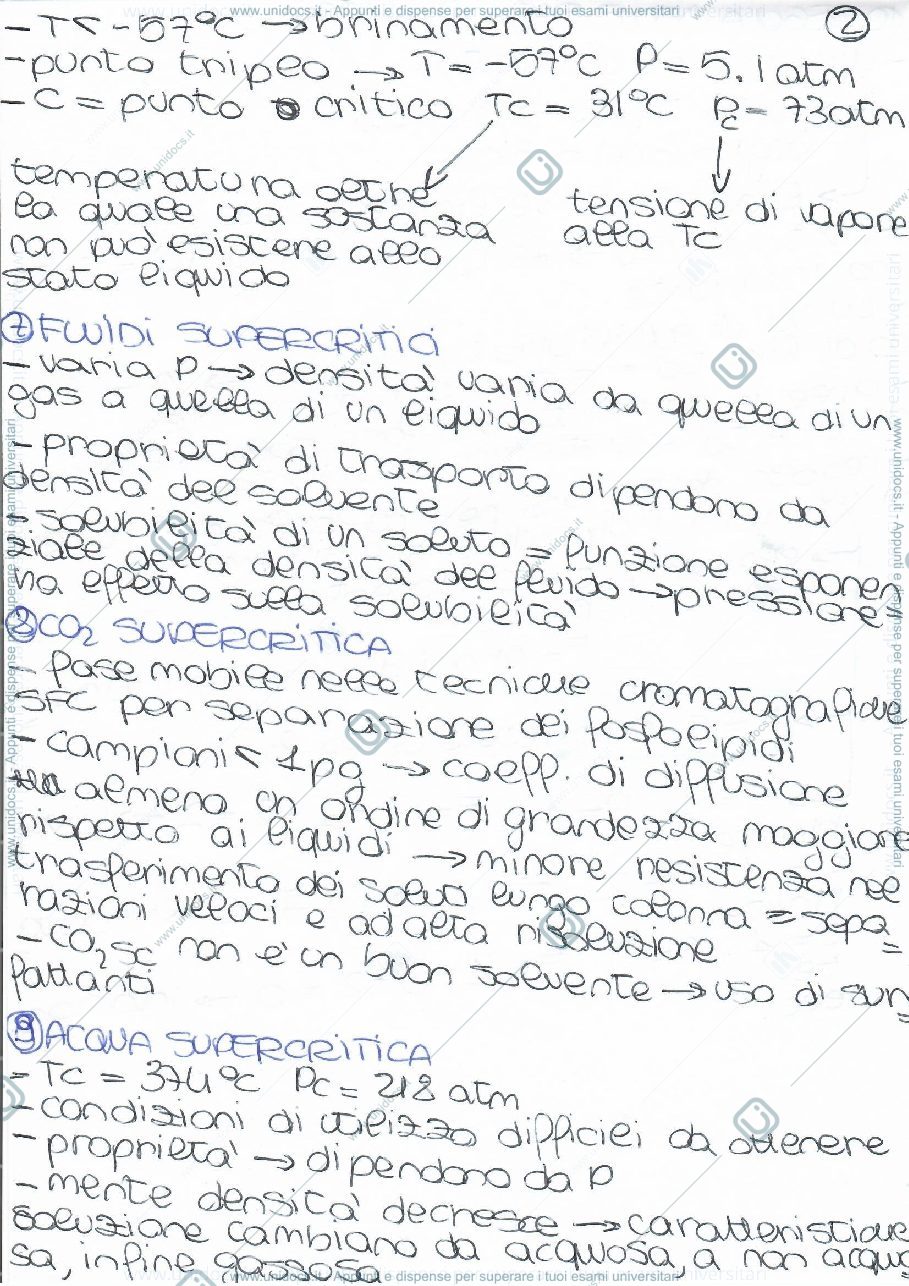 www.unidocs.it - Appunti e dispense per superare i tuoi esami universitari
②
- T < -57°C → brinamento
- punto triplo → T = -57°C P = 5.1 atm
- C = punto critico Tc = 31°C Pc = 73 atm
temperatura oltre
la quale una sostanza
non può esistere allo
stato liquido
tensione di vapore
alla Tc
⑦ FLUIDI SUPERCRITICI
- varia P → densità varia da quella di un
gas a quella di un liquido
- proprietà di trasporto dipendono da
densità del solvente
- solubilità di un soluto = funzione esponen
ziale della densità del fluido → pressione
ha effetto sulla solubilità
⑧ CO2 SUPERCRITICA
- fase mobile nelle tecniche cromatografiche
SFC per separazione dei fosfolipidi
- campioni < 1pg → coeff. di diffusione
almeno un ordine di grandezza maggiore
rispetto ai liquidi → minore resistenza nel
trasferimento dei soluti lungo colonna = sepa=
razioni veloci e ad alta risoluzione
- CO2 sc non è un buon solvente → uso di sur=
fattanti
⑨ ACQUA SUPERCRITICA
- Tc = 374°C Pc = 218 atm
- condizioni di utilizzo difficili da ottenere
- proprietà → dipendono da P
- mentre densità decresce → caratteristiche
soluzione cambiano da acquosa, a non acquo
sa, infine gassosa
www.unidocs.it - Appunti e dispense per superare i tuoi esami universitari